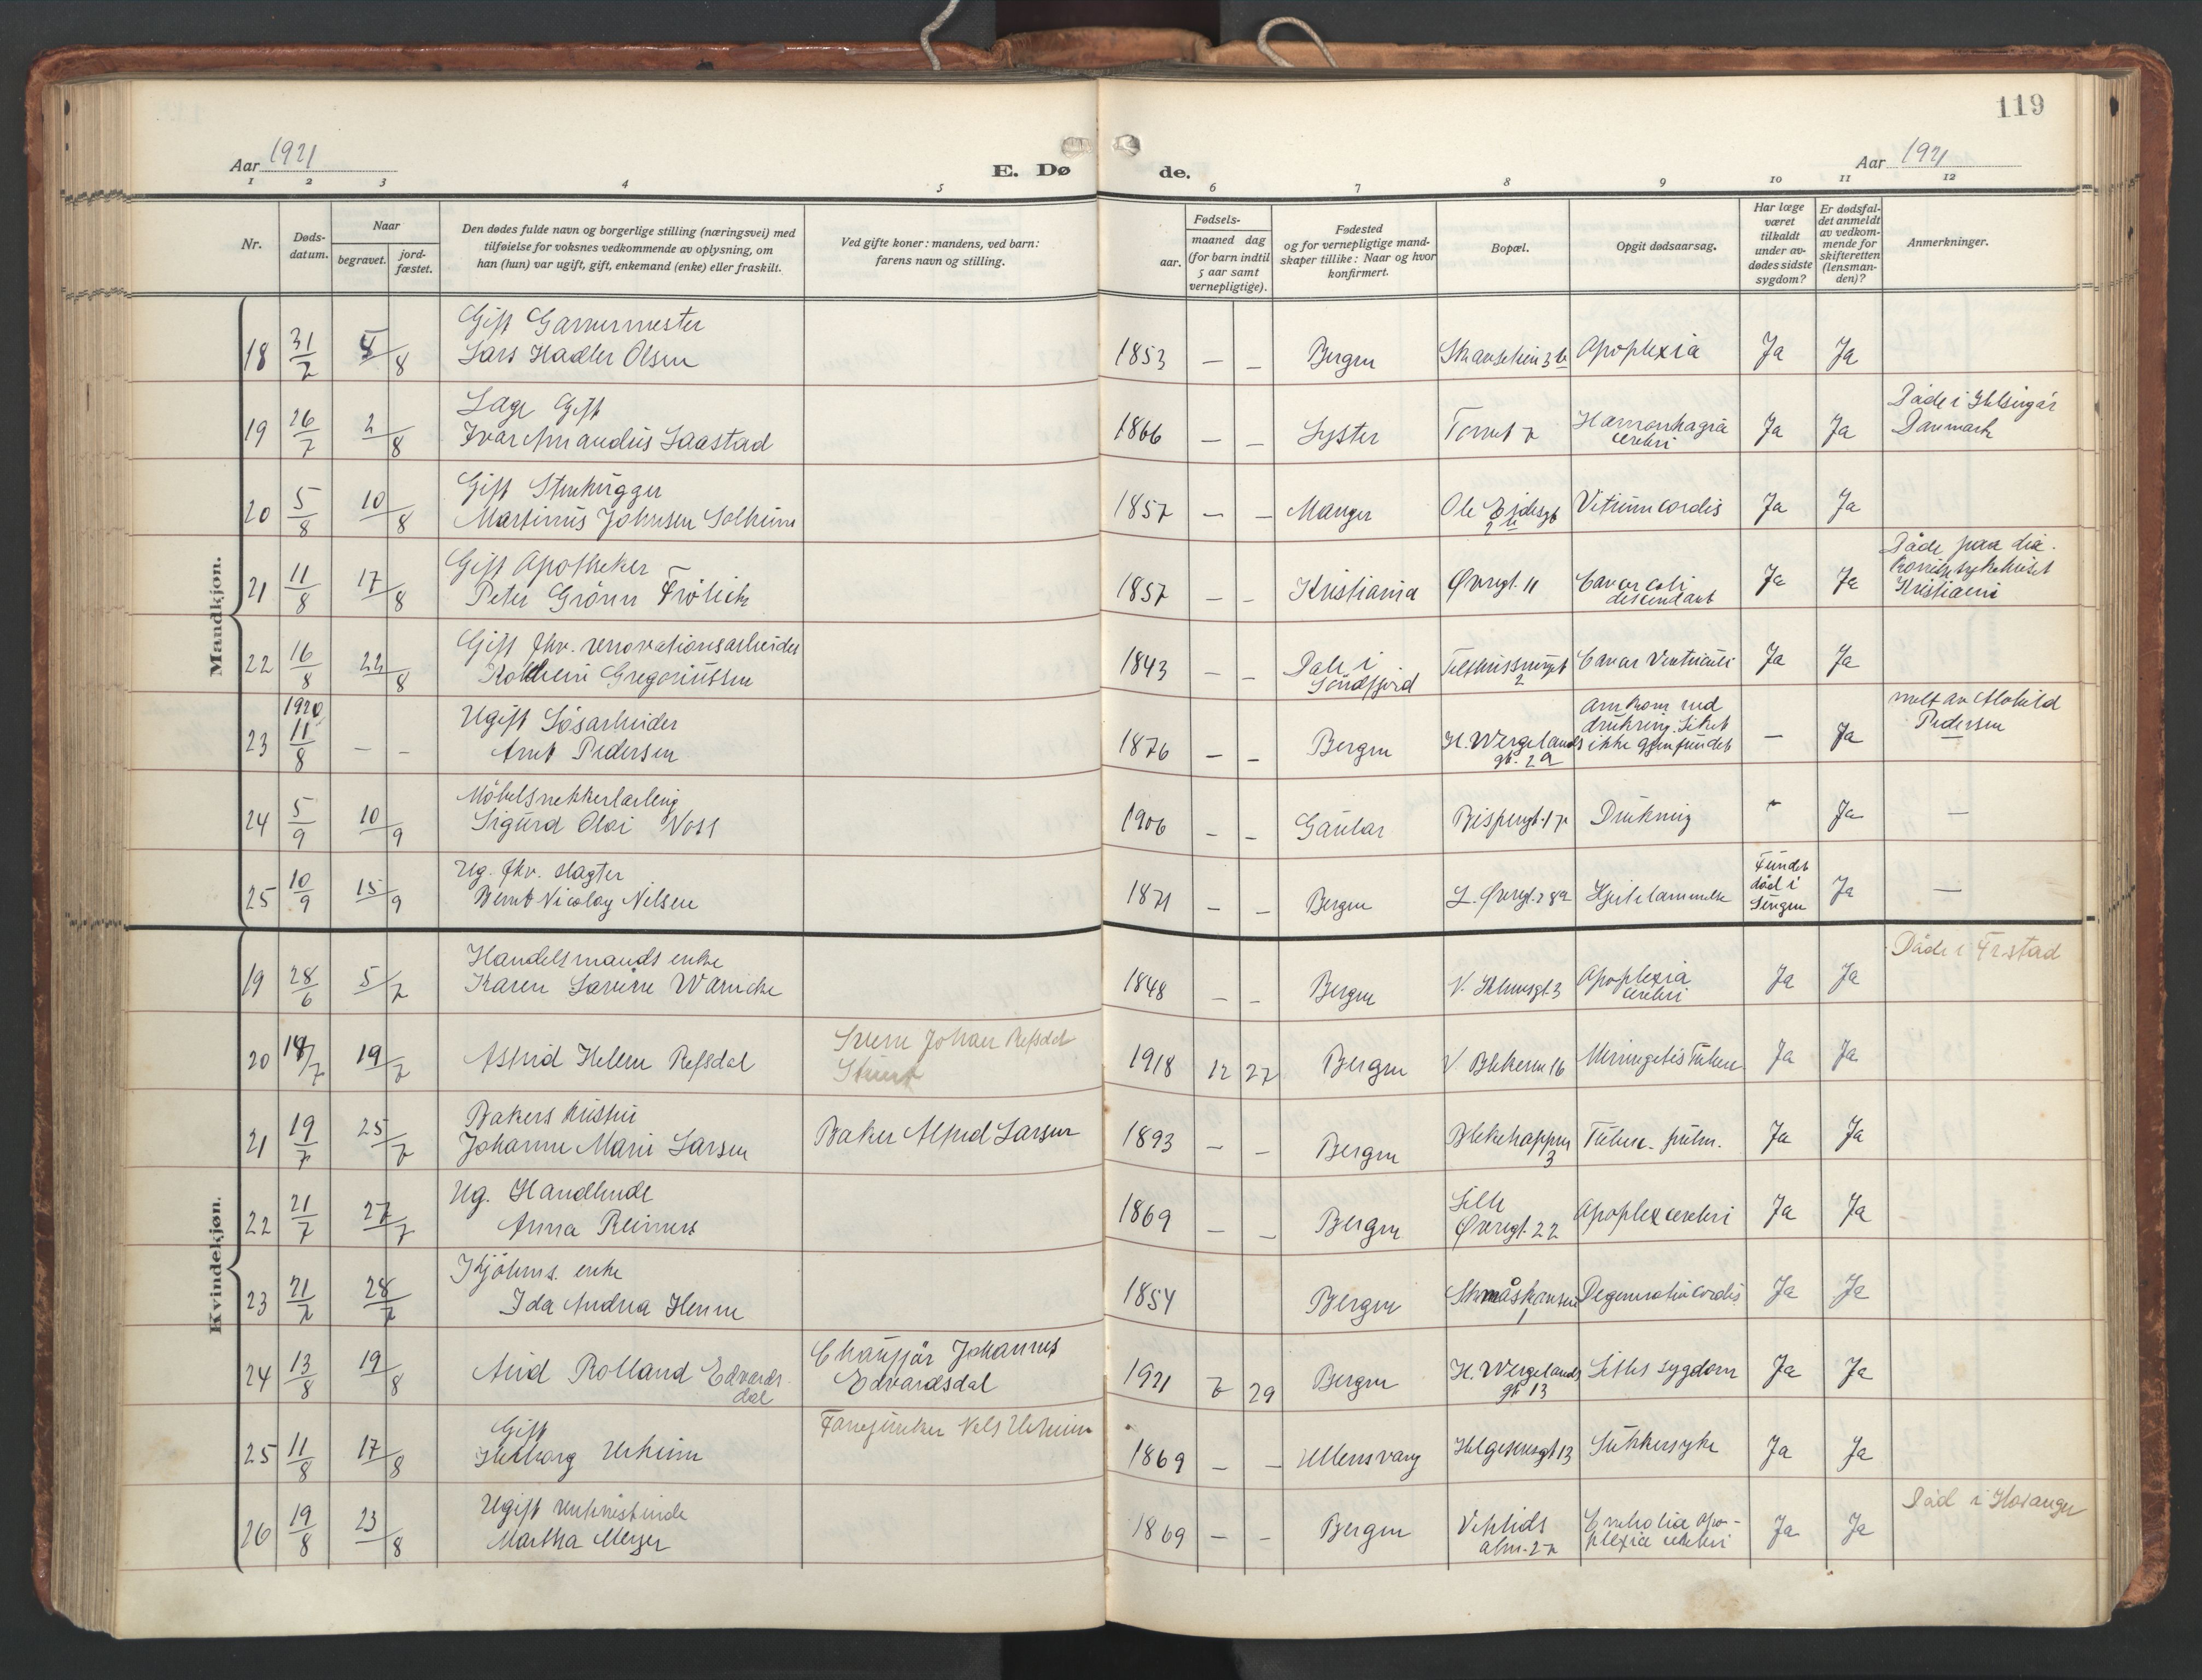 119
Aar 1921
E. Døde.
Aar 1921
1 2 3 4 5 6 7 8 9 10 11 12
Nr.
Døds-
datum.
Naar
begravet.
jord-
fæstet.
Den dødes fulde navn og borgerlige stilling (næringsvei) med
tilføielse for voksnes vedkommende av oplysning, om
han (hun) var ugift, gift, enkemand (enke) eller fraskilt.
Ved gifte koner: mandens, ved barn:
farens navn og stilling.
Fødsels-
aar.
maaned dag
(for barn indtil
5 aar samt
vernepligtige).
Fødested
og for vernepligtige mand-
skaper tillike: Naar og hvor
konfirmert.
Bopæl.
Opgit dødsaarsag.
Har læge
været
tilkaldt
under av-
dødes sidste
sygdom?
Er dødsfal-
det anmeldt
av vedkom-
mende for
skifteretten
(lensman-
den)?
Anmerkninger.
Mandkjøn.
18 31/7 5/8 Gift Garvermester
Lars Hadler Olsen 1853 — — Bergen Apoplexia Ja Ja
19 26/7 2/8 Læge Gift
Ivar Amandus Saastad 1866 — — Lyster Torvet 7 Hæmorrhagia
cerebri Ja Ja Døde i Helsingør
Danmark
20 5/8 10/8 Gift Stenhugger
Martinus Johnsen Solheim 1857 — — Manger Vitium cordis Ja Ja
21 11/8 17/8 Gift Apotheker
Peter Grönn Frölich 1857 — — Kristiania Øvregt. 11 Cancer coli
descendent Ja Ja Døde paa dia-
konissesykehuset
Kristiania
22 16/8 22/8 Gift fhv. renovationsarbeider
Gregoriussen 1843 — — Dale i
Söndfjord 2 Cancer Ventriculi Ja Ja
1920
23 11/8 — — Ugift Løsarbeider
Arnt Pedersen 1876 — — Bergen H. Wergelands
gt. 29 omkom ved
drukning. Liket
ikke gjenfundet — Ja melt av
Pedersen
24 5/9 10/9 Möbelsnekkerlærling
Sigurd Olai Voss 1906 — — Gaular Bispengt. 17 Drukning — Ja —
25 10/9 15/9 Ug. fhv. slagter
Bernt Nicolay Nilsen 1871 — — Bergen L. Øvregt. 28a Hjertelammelse Fundet
död i
Sengen Ja —
Kvindekjøn.
19 28/6 5/7 Handelsmands enke
Karen Warncke 1848 — — Bergen Apoplexia
cerebri Ja Ja Döde i
20 14/7 19/7 Astrid Helene Refsdal Johan Refsdal
Stuert 1918 12 27 Bergen V Blekevn 16 Meningitis Tuberc Ja Ja
21 19/7 25/7 Bakers hustru
Johanne Marie Larsen Baker Alfred Larsen 1893 — — Bergen 3 Tuberc. pulm. Ja Ja
22 21/7 27/7 Ug. Handlende
Anna Reimers 1869 — — Bergen Lille
Øvregt. 22 Apoplex cerebri Ja Ja
23 21/7 28/7 Kjøbms. enke
Ida Andrea 1854 Bergen 1 Degeneratio cordis Ja Ja
24 13/8 19/8 Rolland Edvards-
dal Chauffør Johannes
Edvardsdal 1921 7 29 Bergen H. Wergelands
gt 13 Littles sygdom Ja Ja
25 11/8 17/8 Gift
Herborg Utheim Fanejunker Nils Utheim 1869 — — Ullensvang Helgesensgt 13 Sukkersyke Ja Ja
26 19/8 23/8 Ugift
Martha Meyer 1869 — — Bergen Vetrlids
alm. 27 Embolia apo-
plexia cerebri Ja Ja Död i